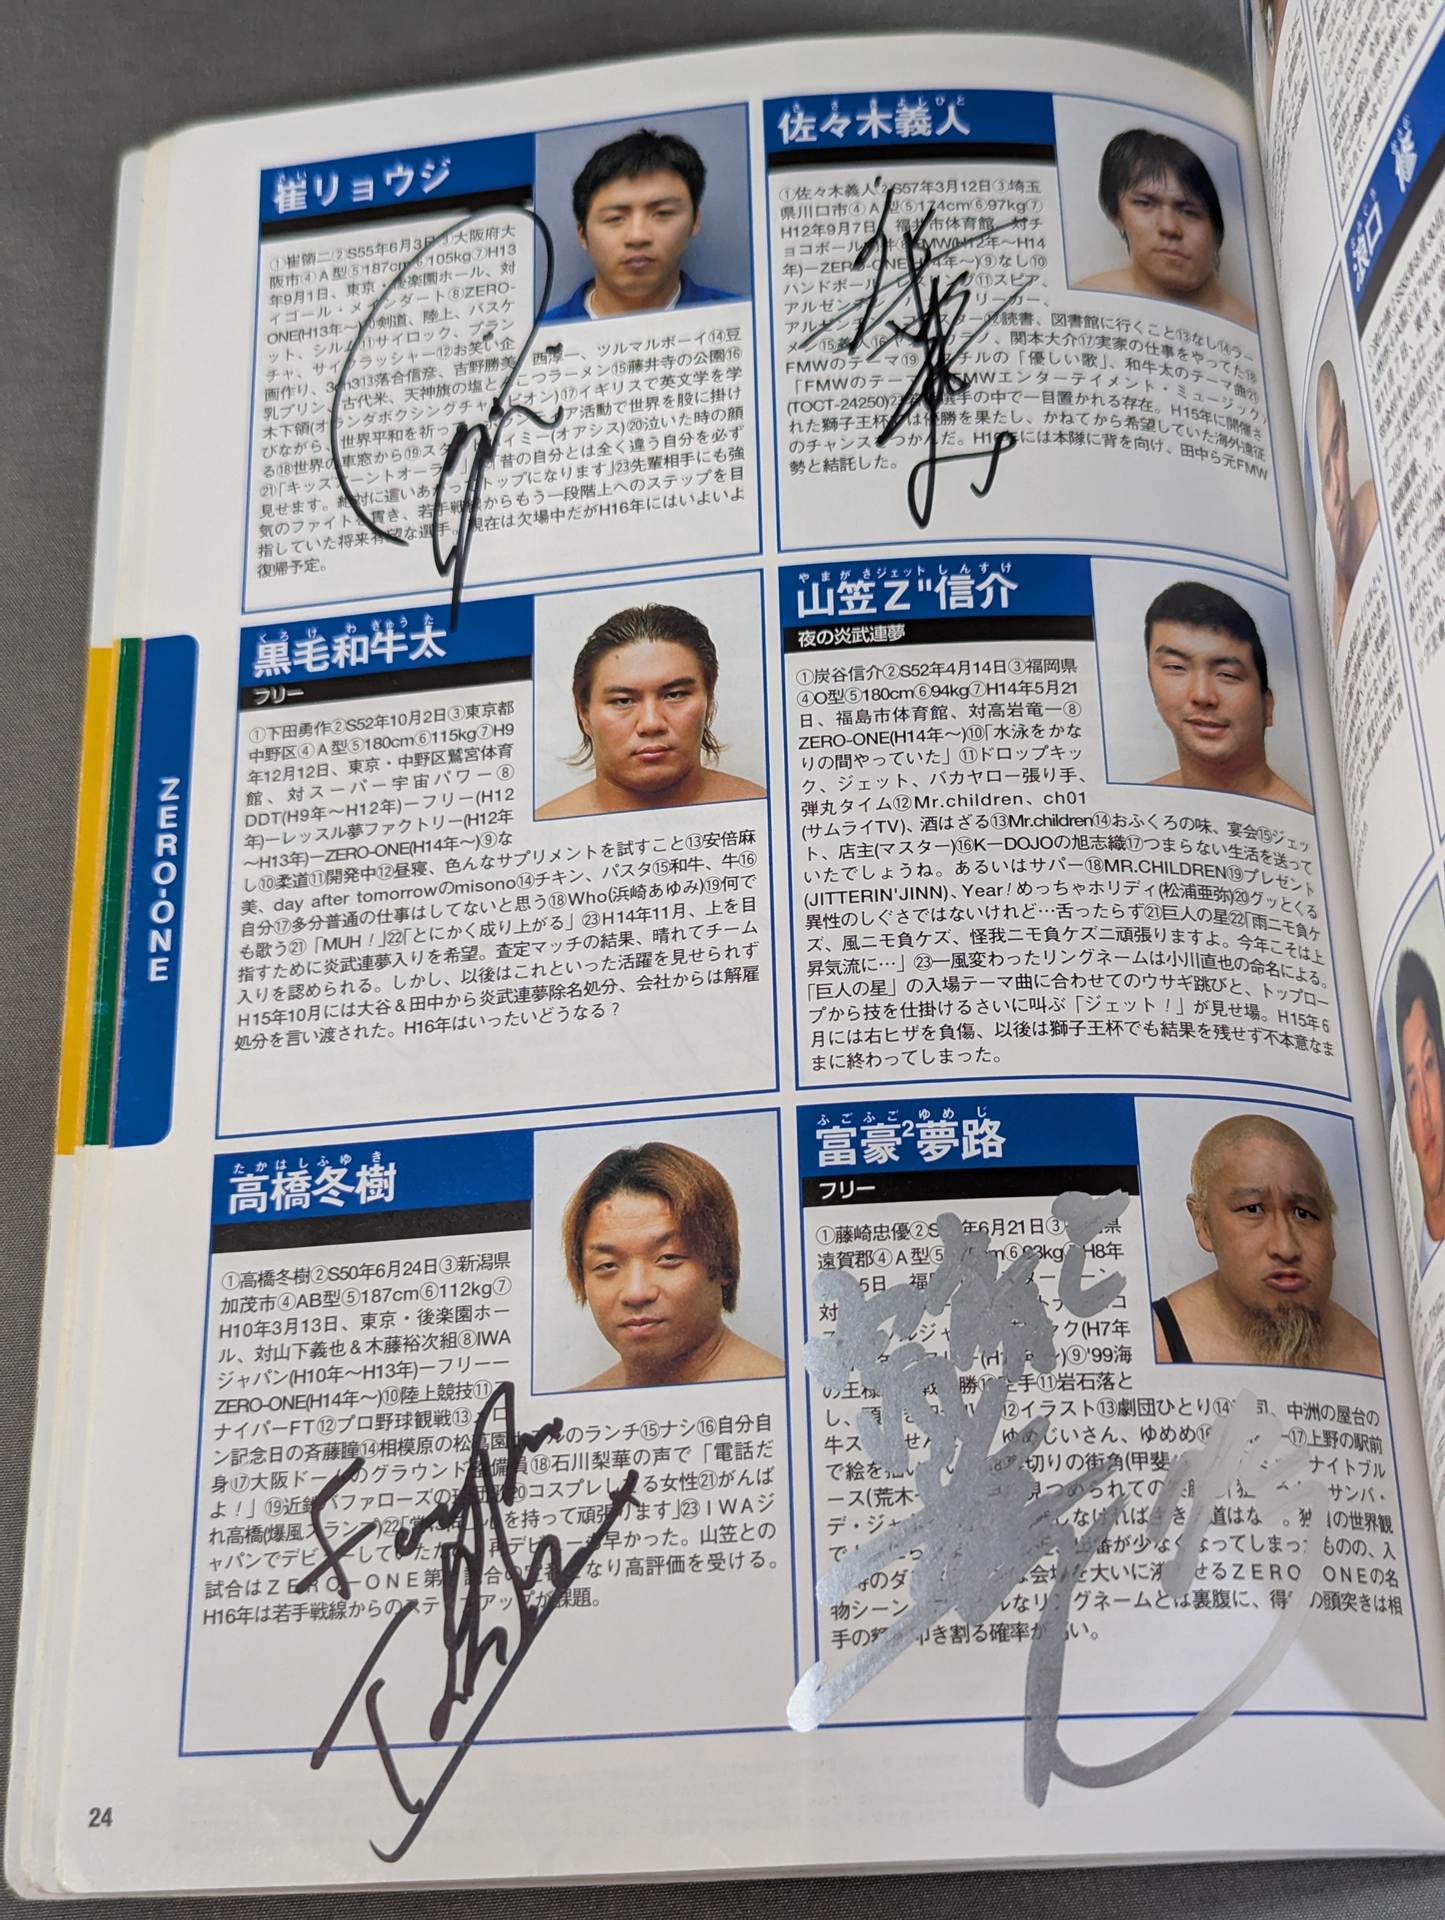 さい
崔リョウジ
①崔領二②S55年6月3日③大阪府大
阪市④A型⑤187cm⑥105kg⑦H13
年9月1日、東京・後楽園ホール、対
イゴール・メインダート⑧ZERO-
ONE(H13年〜)⑩剣道、陸上、バスケ
ット、シルム⑪サイロック、ブラン
チャ、サイクラッシャー⑫お笑い企
画作り、
⑬落合信彦、吉野勝美
西淳一、ツルマルボーイ⑭豆
乳プリン、古代米、天神旗の塩とんこつラーメン⑮藤井寺の公園⑯
木下領(オランダボクシングチャンピオン)⑰イギリスで英文学を学
びながら、世界平和を祈って
ア活動で世界を股に掛け
る⑱世界の車窓から⑲スタ
イミー(オアシス)⑳泣いた時の顔
㉑「キッズアーントオーラ
「昔の自分とは全く違う自分を必ず
見せます。絶対に這いあがってトップになります」㉓先輩相手にも強
気のファイトを貫き、若手戦線からもう一段階上へのステップを目
指していた将来有望な選手。現在は欠場中だがH16年にはいよいよ
復帰予定。
ささきよしひと
佐々木義人
①佐々木義人②S57年3月12日③埼玉
県川口市④A型⑤174cm⑥97kg⑦
H12年9月7日、福井市体育館、対チ
ョコボール向井⑧FMW(H12年〜H14
年)ーZERO-ONE(H14年〜)⑨なし⑩
ハンドボール、レスリング⑪スピア、
アルゼンチン・バックブリーカー、
アルゼンチン
スター⑫読書、図書館に行くこと⑬なし⑭ラー
メン⑮義人⑯
ノ、関本大介⑰実家の仕事をやってた⑱
FMWのテーマ⑲
スチルの「優しい歌」、和牛太のテーマ曲㉑
「FMWのテーマ
FMWエンターテイメント・ミュージック
(TOCT-24250)㉓
選手の中で一目置かれる存在。H15年に開催さ
れた獅子王杯では優勝を果たし、かねてから希望していた海外遠征
のチャンスをつかんだ。H15年には本隊に背を向け、田中ら元FMW
勢と結託した。
くろけわぎゅうた
黒毛和牛太
フリー
①下田勇作②S52年10月2日③東京都
中野区④A型⑤180cm⑥115kg⑦H9
年12月12日、東京・中野区鷺宮体育
館、対スーパー宇宙パワー⑧
DDT(H9年〜H12年)ーフリー(H12
年)ーレッスル夢ファクトリー(H12年
〜H13年)ーZERO-ONE(H14年〜)⑨な
し⑩柔道⑪開発中⑫昼寝、色んなサプリメントを試すこと⑬安倍麻
美、day after tomorrowのmisono⑭チキン、パスタ⑮和牛、牛⑯
自分⑰多分普通の仕事はしてないと思う⑱Who(浜崎あゆみ)⑲何で
も歌う㉑「MUH！」㉒「とにかく成り上がる」㉓H14年11月、上を目
指すために炎武連夢入りを希望。査定マッチの結果、晴れてチーム
入りを認められる。しかし、以後はこれといった活躍を見せられず
H15年10月には大谷＆田中から炎武連夢除名処分、会社からは解雇
処分を言い渡された。H16年はいったいどうなる？
やまがさジェットしんすけ
山笠Z"信介
夜の炎武連夢
①炭谷信介②S52年4月14日③福岡県
④O型⑤180cm⑥94kg⑦H14年5月21
日、福島市体育館、対高岩竜一⑧
ZERO-ONE(H14年〜)⑩「水泳をかな
りの間やっていた」⑪ドロップキッ
ク、ジェット、バカヤロー張り手、
弾丸タイム⑫Mr.children、ch01
(サムライTV)、酒はざる⑬Mr.children⑭おふくろの味、宴会⑮ジェッ
ト、店主(マスター)⑯KーDOJOの旭志織⑰つまらない生活を送って
いたでしょうね。あるいはサパー⑱MR.CHILDREN⑲プレゼント
(JITTERIN'JINN)、Year！めっちゃホリディ(松浦亜弥)⑳グッとくる
異性のしぐさではないけれど…舌ったらず㉑巨人の星㉒「雨ニモ負ケ
ズ、風ニモ負ケズ、怪我ニモ負ケズニ頑張りますよ。今年こそは上
昇気流に…」㉓一風変わったリングネームは小川直也の命名による。
「巨人の星」の入場テーマ曲に合わせてのウサギ跳びと、トップロー
プから技を仕掛けるさいに叫ぶ「ジェット！」が見せ場。H15年6
月には右ヒザを負傷、以後は獅子王杯でも結果を残せず不本意なま
まに終わってしまった。
たかはしふゆき
高橋冬樹
①高橋冬樹②S50年6月24日③新潟県
加茂市④AB型⑤187cm⑥112kg⑦
H10年3月13日、東京・後楽園ホー
ル、対山下義也＆木藤裕次組⑧IWA
ジャパン(H10年〜H13年)ーフリーー
ZERO-ONE(H14年〜)⑩陸上競技⑪ス
ナイパーFT⑫プロ野球観戦⑬メロ
ン記念日の斉藤瞳⑭相模原の松葛園ホテルのランチ⑮ナシ⑯自分自
身⑰大阪ドームのグラウンド整備員⑱石川梨華の声で「電話だ
よ！」⑲近鉄バファローズの球団歌⑳コスプレしてる女性㉑がんば
れ高橋(爆風スランプ)㉒「常に向上心を持って頑張ります」㉓IWAジ
ャパンでデビューしていただ
再デビューも早かった。山笠との
試合はZERO-ONE第
試合の定番となり高評価を受ける。
H16年は若手戦線からのステップアップが課題。
ふごふごゆめじ
富豪²夢路
フリー
①藤崎忠優②S
年6月21日③
県
遠賀郡④A型⑤
5cm⑥93kg⑦H8年
5日、福
対
ク(H7年
⑨'99海
の王様
勝⑩空手⑪岩石落と
し、頭
⑫イラスト⑬劇団ひとり⑭
司、中洲の屋台の
牛ス
ゆめじいさん、ゆめめ⑯
⑰上野の駅前
で絵を描い
切りの街角(甲斐
ナイトブル
ース(荒木
見つめられての
サンバ・
デ・ジャ
しなければ生き
道はな
独自の世界観
で
出番が少なくなってしまったものの、入
場時のダ
な会場を大いに沸かせるZERO-ONEの名
物シーン
ルなリングネームとは裏腹に、得意の頭突きは相
手の
叩き割る確率が高い。
ZERO-ONE
24